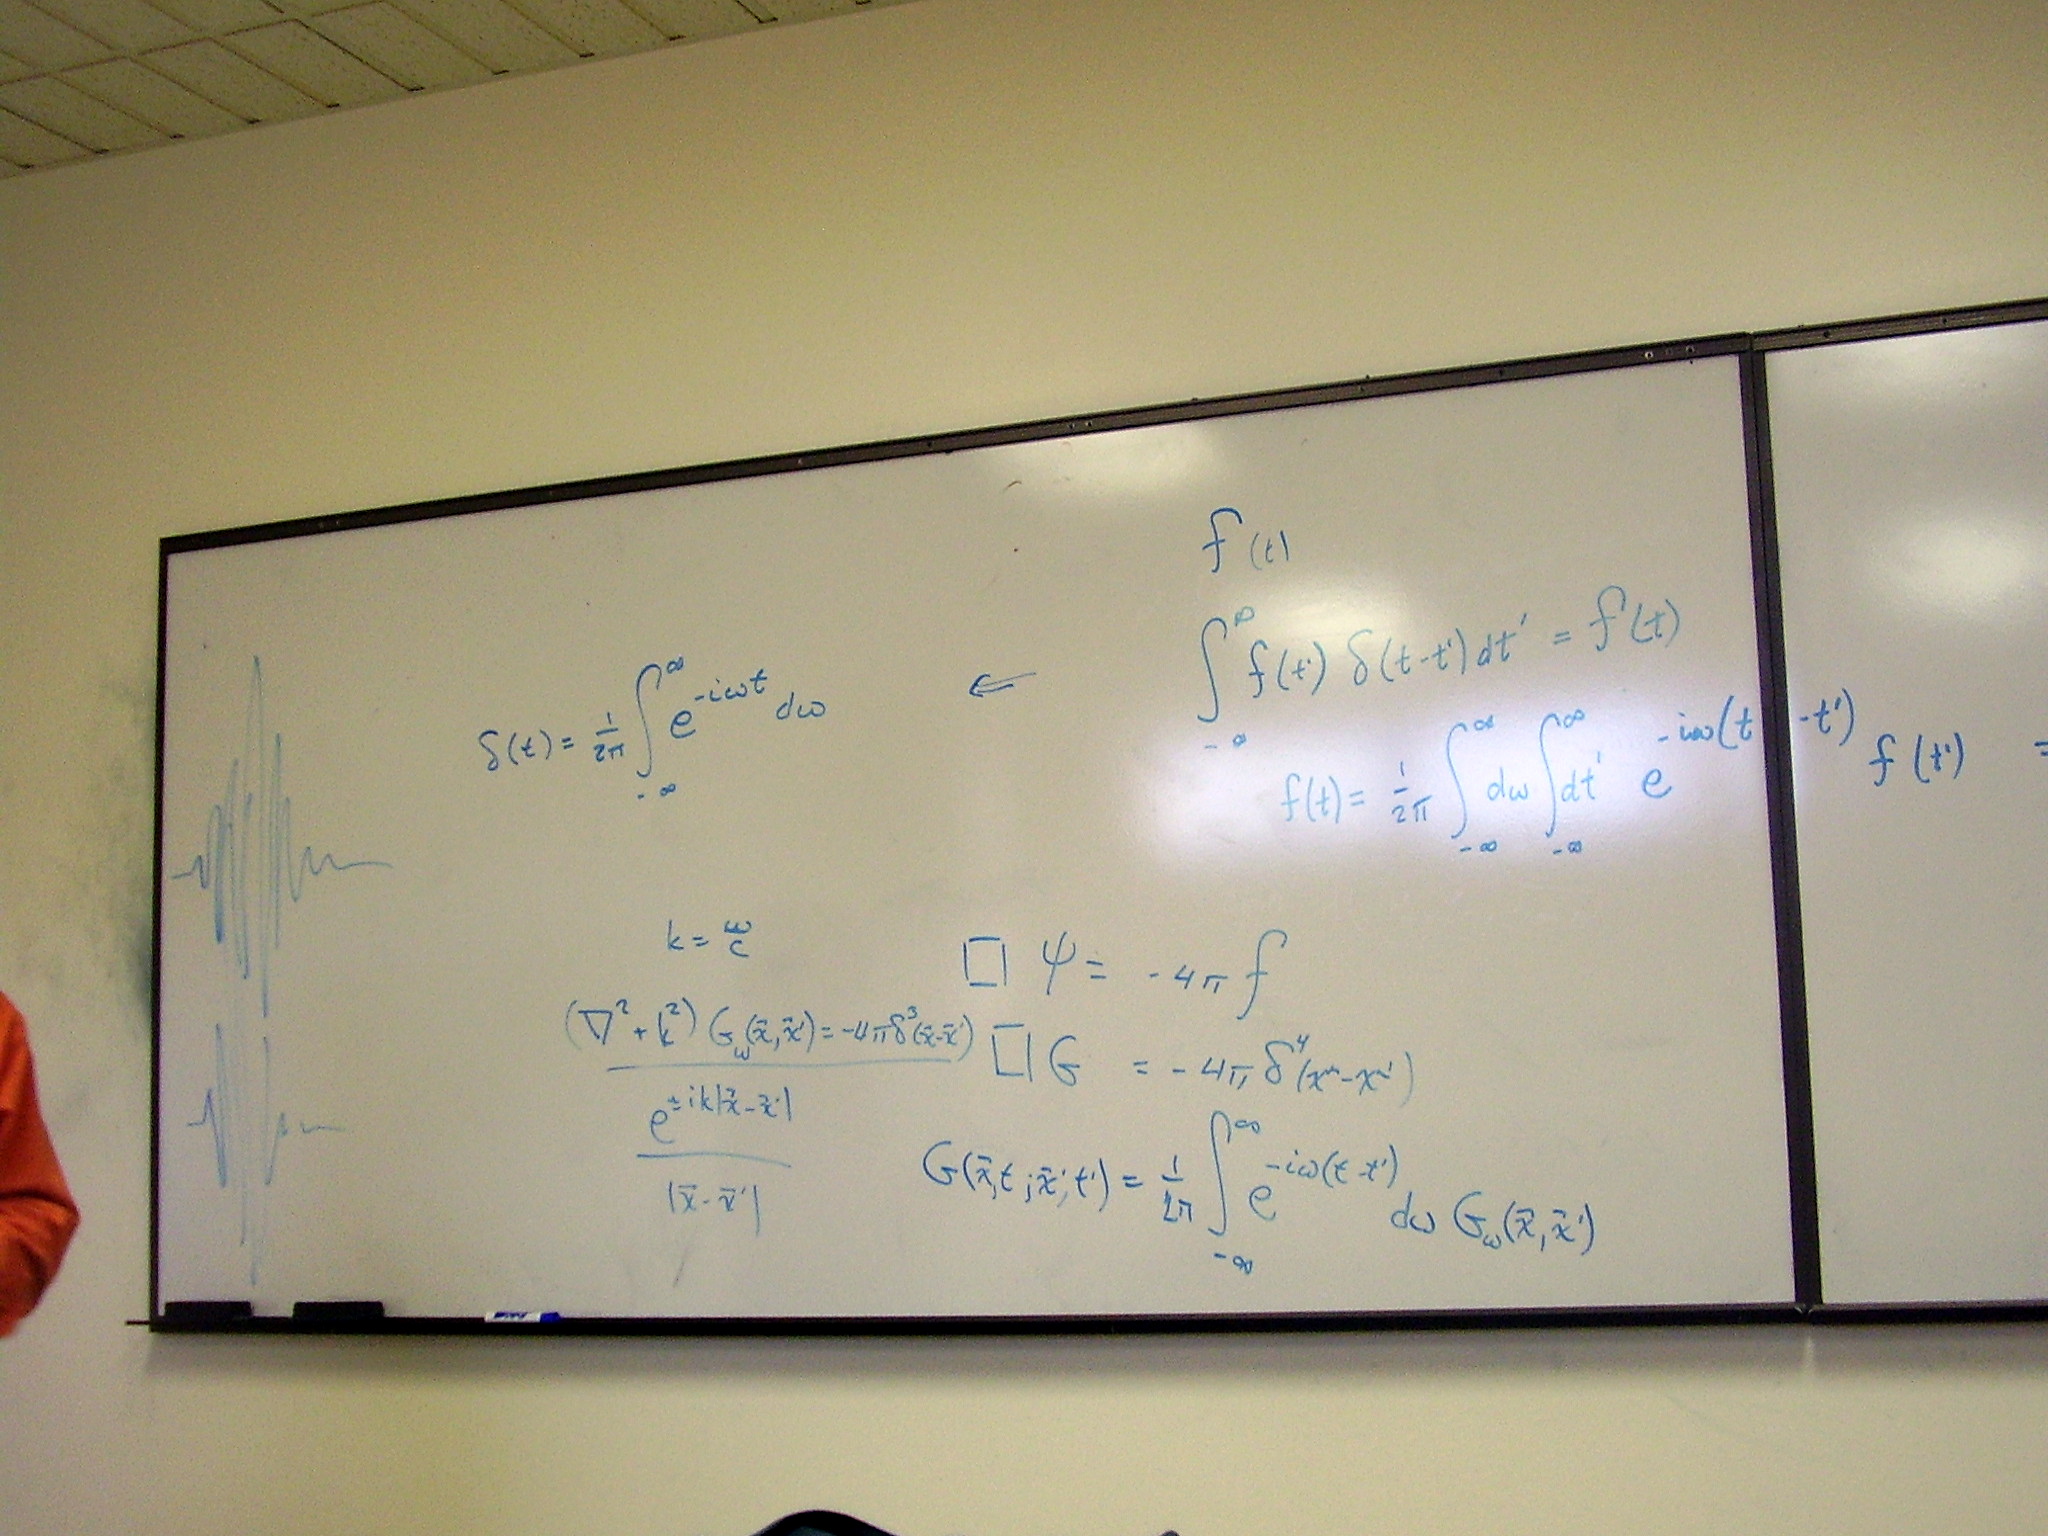 f(t)
∫_{-∞}^{∞} f(t') δ(t-t') dt' = f(t)
δ(t) = 1/2π ∫_{-∞}^{∞} e^{-iωt} dω ⇐
f(t) = 1/2π ∫_{-∞}^{∞} dω ∫_{-∞}^{∞} dt' e^{-iω(t-t')} f(t') =
k = ω/c
□ ψ = -4π f
(∇² + k²) G_ω(x̄, x̄') = -4π δ³(x̄-x̄')
□ G = -4π δ⁴(x^μ - x^μ')
e^{±ik|x̄-x̄'|} / |x̄-x̄'|
G(x̄,t; x̄',t') = 1/2π ∫_{-∞}^{∞} e^{-iω(t-t')} dω G_ω(x̄, x̄')